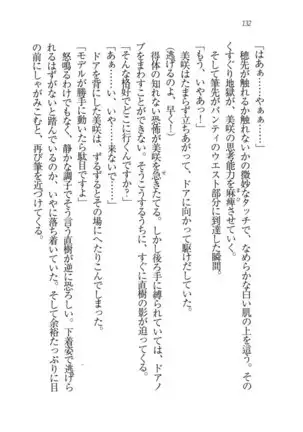 132
「はぁ……やぁぁ……」
穂先が触れるか触れないかの微妙なタッチで、なめらかな白い肌の上を這う。その
くすぐり地獄が、美咲の思考能力を麻痺させていく。
そして筆先がパンティのウエスト部分に到達した瞬間。
「もう、いやあっ！」
美咲はたまらず立ちあがって、ドアに向かって駆けだしていた。
（逃げるのよ、早く！）
得体の知れない恐怖が美咲を急きたてる。しかし後ろ手に縛られていては、ドアノ
ブをつかむことができない。そうこうするうちに、すぐに直樹の影が迫ってくる。
「そんな格好でどこに行くんですか？」
「ああっ……いやっ……来ないで……」
ドアを背に美咲は、ずるずるとその場にへたりこんでしまった。
「モデルが勝手に動いたら駄目ですよ」
怒鳴るわけでもなく、静かな調子でそう言う直樹が逆に恐ろしい。下着姿で逃げら
れるはずがないと踏んでいるのか、いやに落ち着いていた。そして余裕たっぷりに目
の前にしゃがみこむと、再び筆を近づけてくる。